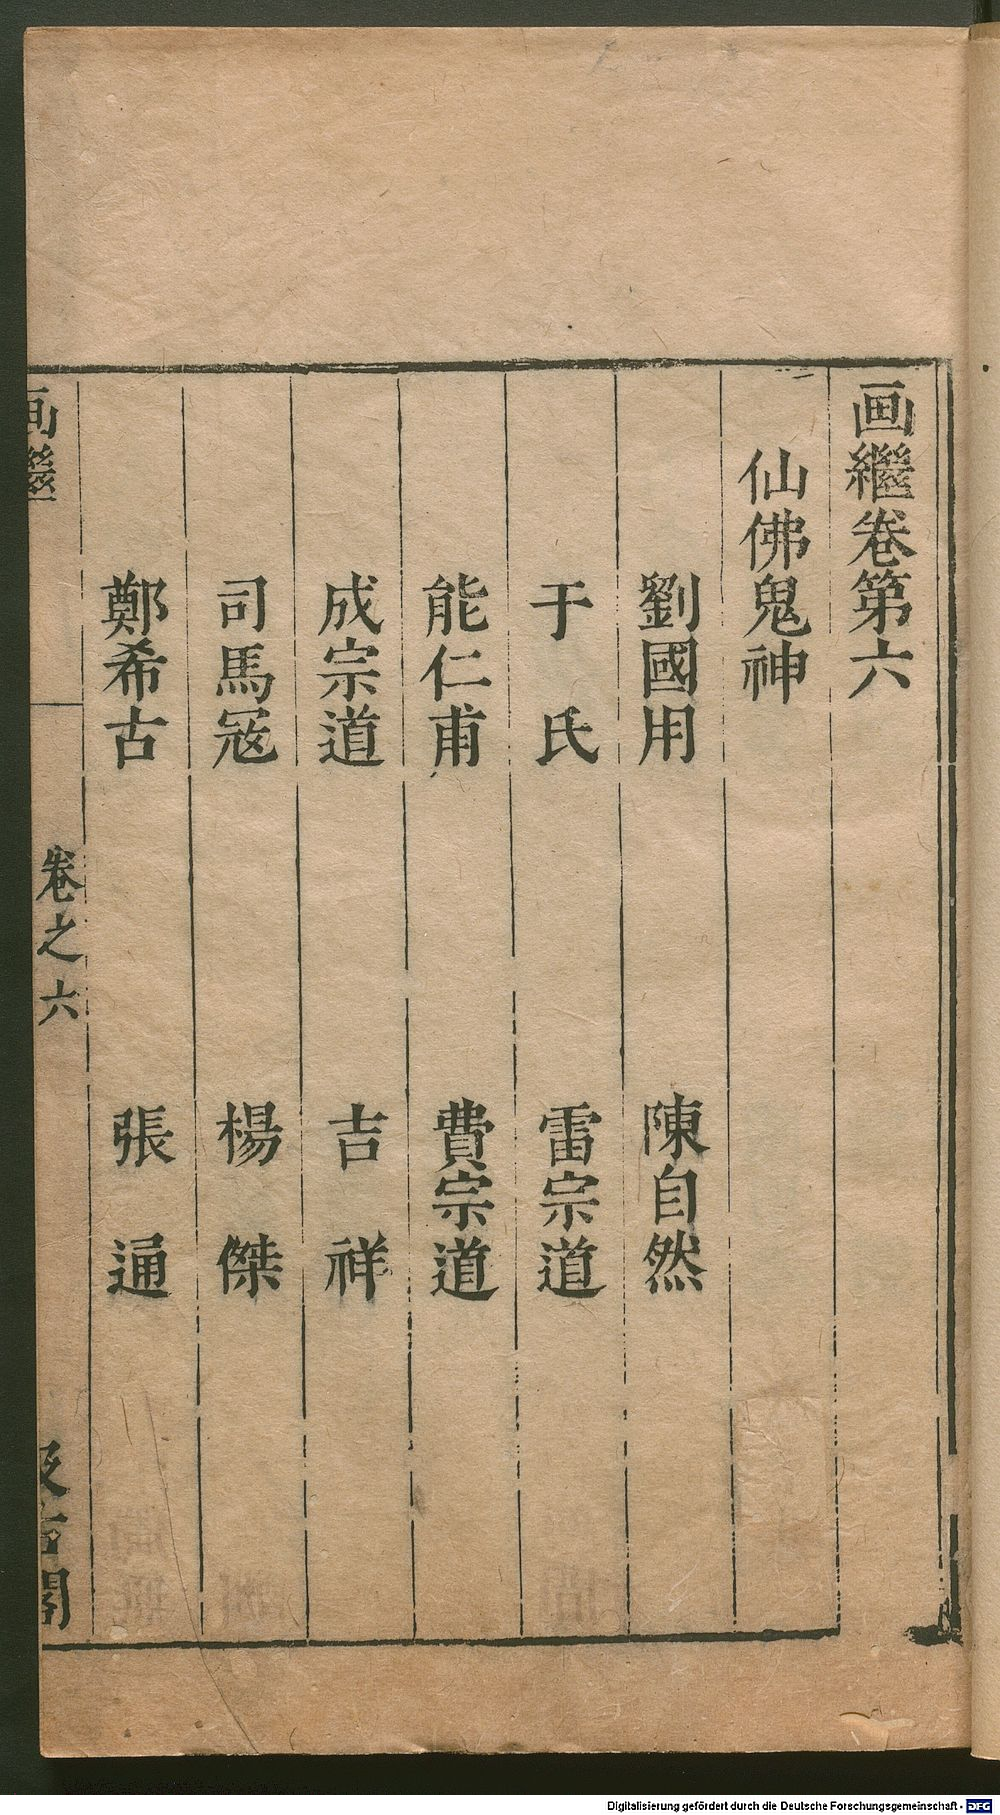 画繼卷第六
仙佛鬼神
劉國用 陳自然
于氏 雷宗道
能仁甫 費宗道
成宗道 吉祥
司馬寇 楊傑
鄭希古 張通
画繼 卷之六 汲古閣
Digitalisierung gefördert durch die Deutsche Forschungsgemeinschaft - DFG